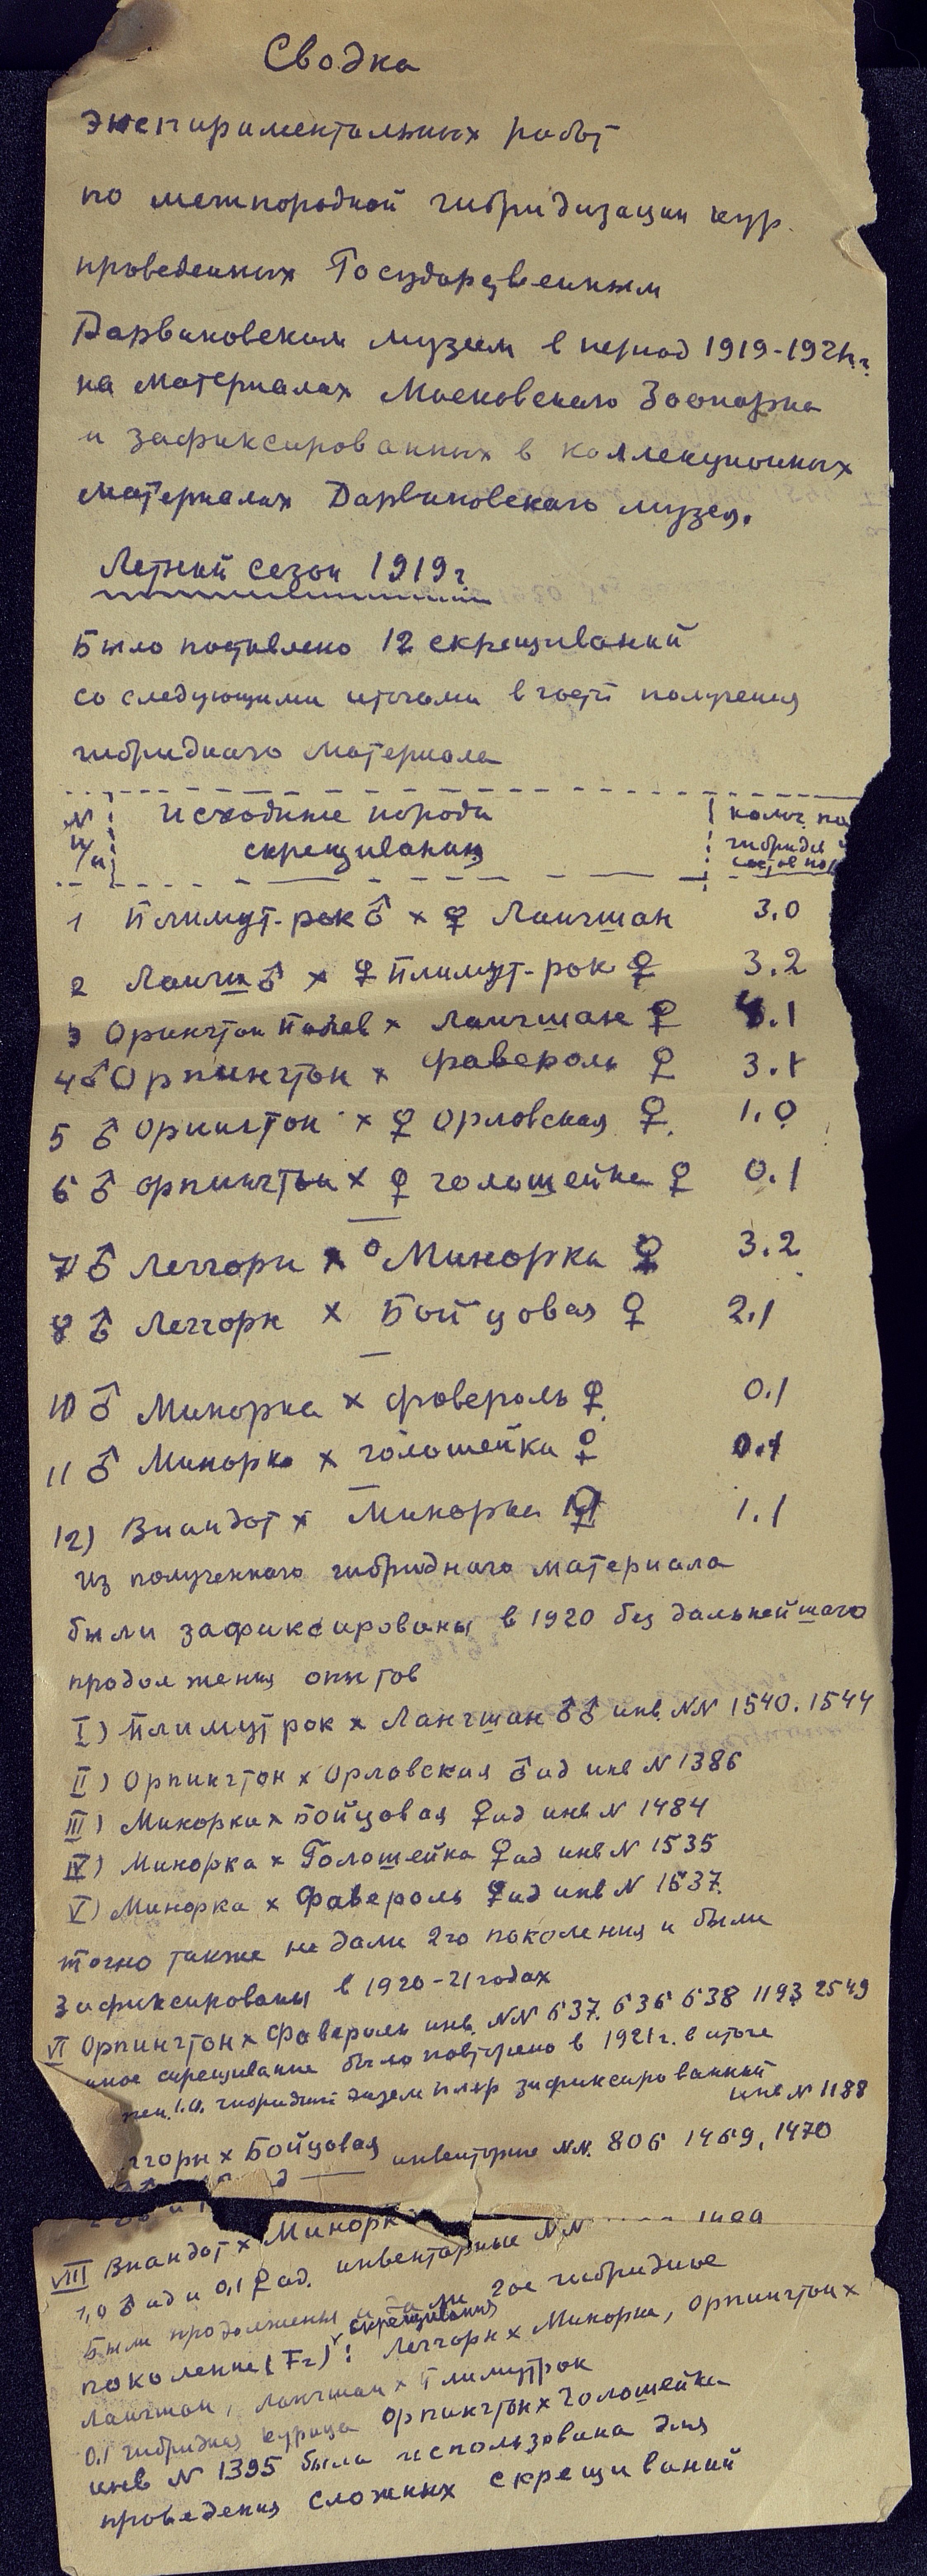 Сводка
экспириментальных работ
по межпородной гибридизации кур
проведенных Государственным
Дарвиновским музеем в период 1919-192
на материалах Московского Зоопарка
и зафиксированных в коллекционных
материалах Дарвиновского музея.
Летний сезон 1919г.
Было поставлено 12 скрещиваний
со следующими итогами в части получения
гибридного материала
N п/п исходные породы колич. по
скрещивания гибридов
1 Плимут-рок ♂ × ♀ Лангшан 3.0
2 Лангш ♂ × ♀ Плимут-рок ♀ 3.2
3 Орпингтон Палев × Лангшан ♀ .1
4 ♂ Орпингтон × Фавероль ♀ 3.1
5 ♂ Орпингтон × ♀ Орловская ♀. 1.0
6 ♂ Орпингтон × ♀ голошейка ♀ 0.1
7 ♂ Леггорн × Минорка ♀ 3.2
8 ♂ Леггорн × Бойцовая ♀ 2.1
10 ♂ Минорка × фавероль ♀ 0.1
11 ♂ Минорка × голошейка ♀ 0.1
12) Виандот × Минорка ♀ 1.1
Из полученного гибридного материала
были зафиксированы в 1920 без дальнейшаго
продолжения опытов
I) Плимут рок × Лангшан ♂♂ инв. NN 1540. 1544
II) Орпингтон × Орловская ♂ ад инв N 1386
III) Минорка × Бойцовая ♀ ад инв N 1484
IV) Минорка × Голошейка ♀ ад инв N 1535
V) Минорка × Фавероль ♀ ад инв N 1537.
точно также не дали 2го поколения и были
зафиксированы в 1920-21 годах
VI Орпингтон × Фавероль инв. NN 637. 636 638 1193 2549
скрещивание было повторено в 1921г. в итоге
1.0. гибридный экземпляр зафиксированный
инв N 1188
ггорн × Бойцовая инвенторные NN. 806 1469, 1470
VIII Виандот × Минорк
1,0 ♂ ад и 0,1 ♀ ад. инвентарные NN
Были продолжены и дали 2ое гибридное
поколение (F2) скрещивания: Леггорн × Минорка, Орпингтон ×
Лангшан, Лангшан × Плимутрок
0.1 гибридная курица Орпингтон × Голошейка
инв N 1395 была использована для
проведения сложных скрещиваний